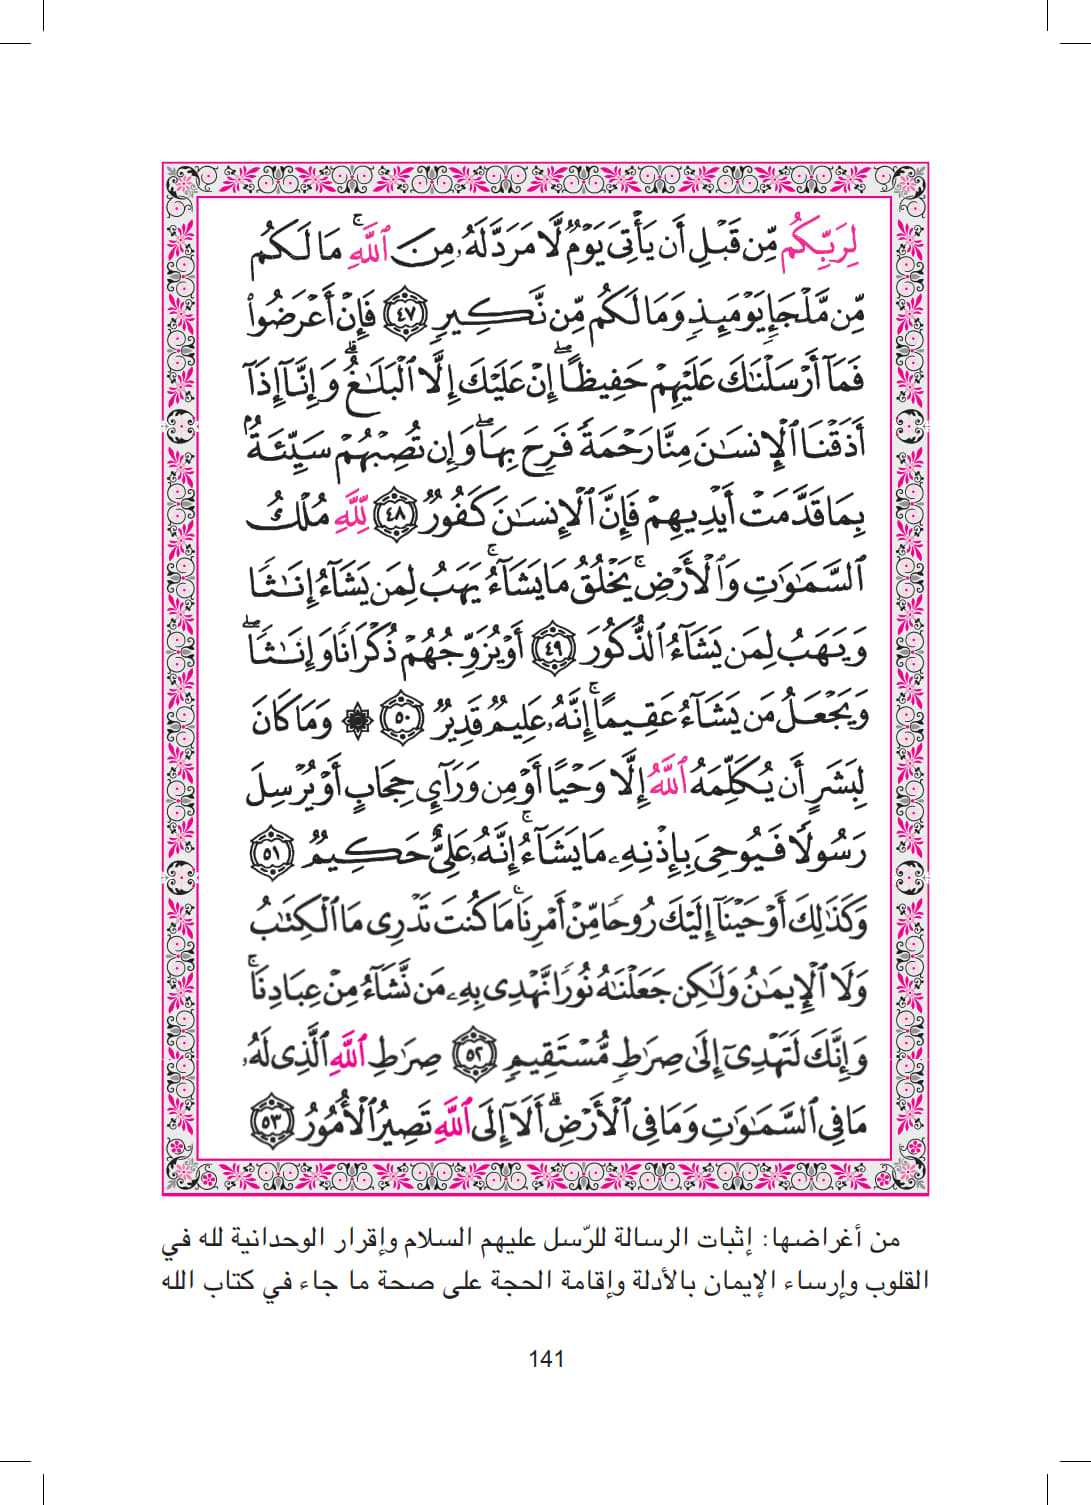 لِرَبِّكُم مِّن قَبْلِ أَن يَأْتِيَ يَوْمٌ لَّا مَرَدَّ لَهُۥ مِنَ ٱللَّهِ ۚ مَا لَكُم
مِّن مَّلْجَإٍ يَوْمَئِذٍ وَمَا لَكُم مِّن نَّكِيرٍ ﴿٤٧﴾ فَإِنْ أَعْرَضُوا۟
فَمَآ أَرْسَلْنَٰكَ عَلَيْهِمْ حَفِيظًا ۖ إِنْ عَلَيْكَ إِلَّا ٱلْبَلَٰغُ ۗ وَإِنَّآ إِذَآ
أَذَقْنَا ٱلْإِنسَٰنَ مِنَّا رَحْمَةً فَرِحَ بِهَا ۖ وَإِن تُصِبْهُمْ سَيِّئَةٌۢ
بِمَا قَدَّمَتْ أَيْدِيهِمْ فَإِنَّ ٱلْإِنسَٰنَ كَفُورٌ ﴿٤٨﴾ لِّلَّهِ مُلْكُ
ٱلسَّمَٰوَٰتِ وَٱلْأَرْضِ ۚ يَخْلُقُ مَا يَشَآءُ ۚ يَهَبُ لِمَن يَشَآءُ إِنَٰثًا
وَيَهَبُ لِمَن يَشَآءُ ٱلذُّكُورَ ﴿٤٩﴾ أَوْ يُزَوِّجُهُمْ ذُكْرَانًا وَإِنَٰثًا ۖ
وَيَجْعَلُ مَن يَشَآءُ عَقِيمًا ۚ إِنَّهُۥ عَلِيمٌ قَدِيرٌ ﴿٥٠﴾ ۞ وَمَا كَانَ
لِبَشَرٍ أَن يُكَلِّمَهُ ٱللَّهُ إِلَّا وَحْيًا أَوْ مِن وَرَآئِ حِجَابٍ أَوْ يُرْسِلَ
رَسُولًا فَيُوحِيَ بِإِذْنِهِۦ مَا يَشَآءُ ۚ إِنَّهُۥ عَلِىٌّ حَكِيمٌ ﴿٥١﴾
وَكَذَٰلِكَ أَوْحَيْنَآ إِلَيْكَ رُوحًا مِّنْ أَمْرِنَا ۚ مَا كُنتَ تَدْرِى مَا ٱلْكِتَٰبُ
وَلَا ٱلْإِيمَٰنُ وَلَٰكِن جَعَلْنَٰهُ نُورًا نَّهْدِى بِهِۦ مَن نَّشَآءُ مِنْ عِبَادِنَا ۚ
وَإِنَّكَ لَتَهْدِىٓ إِلَىٰ صِرَٰطٍ مُّسْتَقِيمٍ ﴿٥٢﴾ صِرَٰطِ ٱللَّهِ ٱلَّذِى لَهُۥ
مَا فِى ٱلسَّمَٰوَٰتِ وَمَا فِى ٱلْأَرْضِ ۗ أَلَآ إِلَى ٱللَّهِ تَصِيرُ ٱلْأُمُورُ ﴿٥٣﴾
من أغراضها: إثبات الرسالة للرّسل عليهم السلام وإقرار الوحدانية لله في
القلوب وإرساء الإيمان بالأدلة وإقامة الحجة على صحة ما جاء في كتاب الله
141